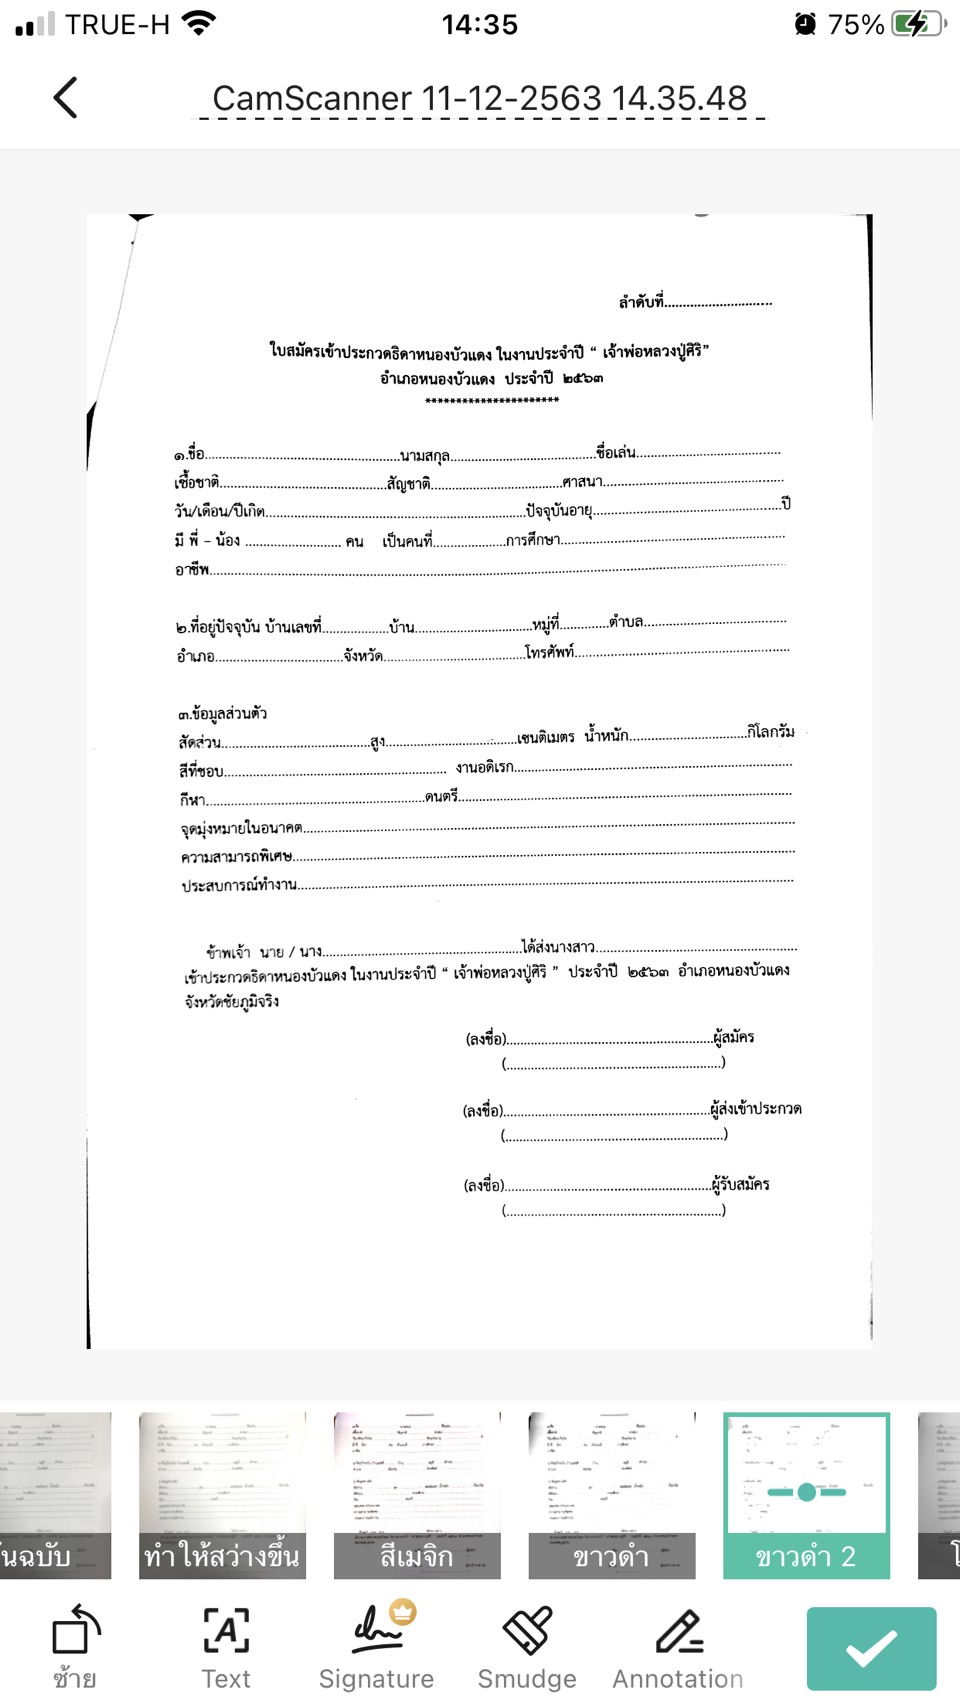 TRUE-H 14:35 75%
CamScanner 11-12-2563 14.35.48
ลำดับที่............................
ใบสมัครเข้าประกวดธิดาหนองบัวแดง ในงานประจำปี “ เจ้าพ่อหลวงปู่ศิริ”
อำเภอหนองบัวแดง ประจำปี ๒๕๖๓
**********************
๑.ชื่อ................................................นามสกุล....................................ชื่อเล่น....................................
เชื้อชาติ..........................................สัญชาติ.................................ศาสนา..............................................
วัน/เดือน/ปีเกิด.................................................................ปัจจุบันอายุ................................................ปี
มี พี่ – น้อง ......................... คน เป็นคนที่...................การศึกษา.........................................................
อาชีพ................................................................................................................................................
๒.ที่อยู่ปัจจุบัน บ้านเลขที่.................บ้าน..............................หมู่ที่.............ตำบล....................................
อำเภอ.................................จังหวัด....................................โทรศัพท์......................................................
๓.ข้อมูลส่วนตัว
สัดส่วน......................................สูง..................................เซนติเมตร น้ำหนัก..............................กิโลกรัม
สีที่ชอบ......................................................... งานอดิเรก......................................................................
กีฬา.......................................................ดนตรี....................................................................................
จุดมุ่งหมายในอนาคต...........................................................................................................................
ความสามารถพิเศษ..............................................................................................................................
ประสบการณ์ทำงาน.............................................................................................................................
ข้าพเจ้า นาย / นาง..................................................ได้ส่งนางสาว..................................................
เข้าประกวดธิดาหนองบัวแดง ในงานประจำปี “ เจ้าพ่อหลวงปู่ศิริ ” ประจำปี ๒๕๖๓ อำเภอหนองบัวแดง
จังหวัดชัยภูมิจริง
(ลงชื่อ)....................................................ผู้สมัคร
(......................................................)
(ลงชื่อ)....................................................ผู้ส่งเข้าประกวด
(......................................................)
(ลงชื่อ)....................................................ผู้รับสมัคร
(......................................................)
นฉบับ ทำให้สว่างขึ้น สีเมจิก ขาวดำ ขาวดำ 2
ซ้าย Text Signature Smudge Annotation